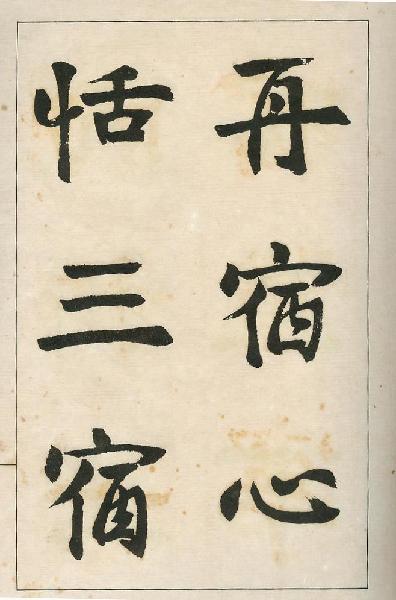 再宿心
恬三宿